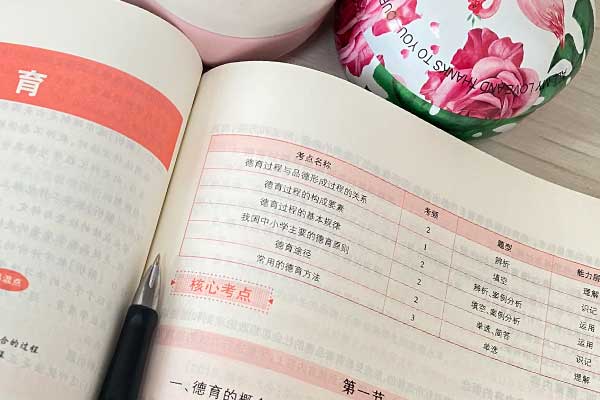 育
ALL MY LOVE AND THANKS TO YOU
考点名称 考频 题型 能力层
德育过程与品德形成过程的关系 2 辨析 理解
德育过程的构成要素 1 填空 识记
德育过程的基本规律 2 辨析、案例分析 运用
我国中小学主要的德育原则 2 填空、案例分析 运用
德育途径 2 单选、简答 识记
常用的德育方法 3 单选 理解
核心考点
合的过程
第一节
一、德育的概